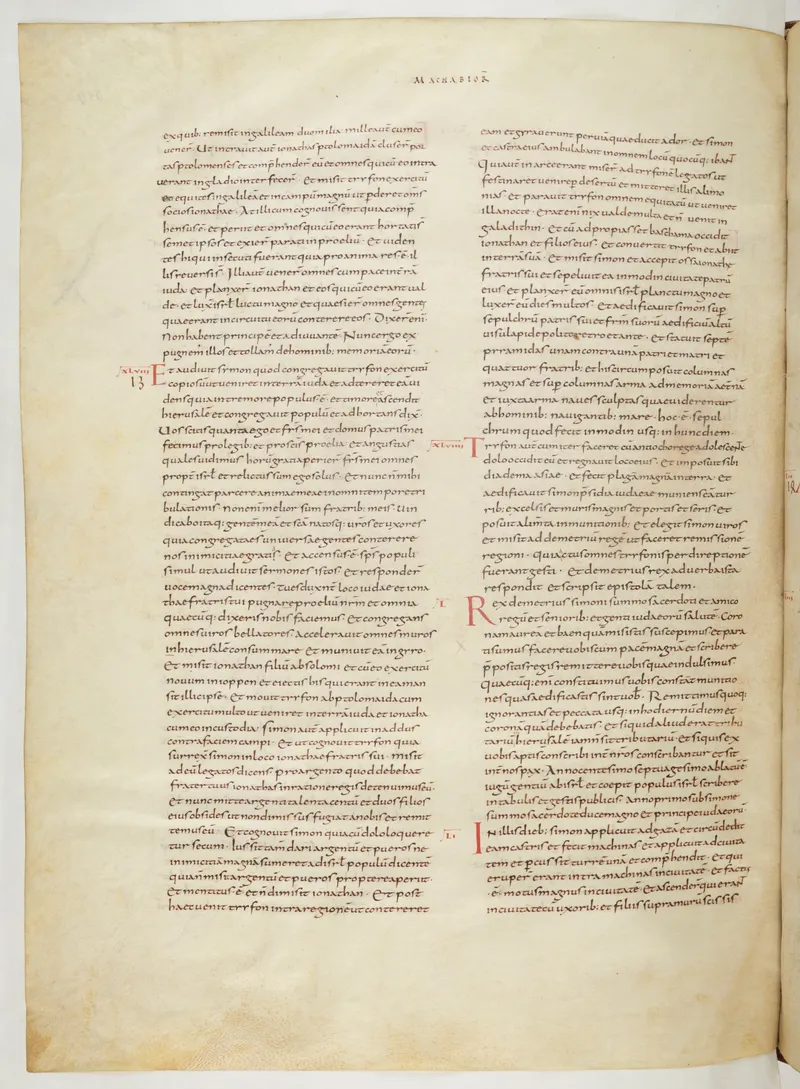 MACHABEOR̄
ex quib; remisit in galileam duo milia mille aut̄ cum eo
uener̄. Ut intrauit aut̄ ionathas ptolomaidā cluser̄ por
tas ptolomenses et comp̄hender̄ eū et omnes qui cū eo intra
uerant in gladio interfecer̄. Et misit tryfon exercitū
et equites in galileā et in campū magnū ut p̱deret om̄s
socios ionathae. At illi cum cognouissent quia comp̄
hensus ē. et periit et omnes qui cū eo erant hortati s̄
semet ipsos et exier̄ parati in proeliū. Et uiden
tes hi qui insecuti fuerant quia pro anima res ē. il
lis reuersi s̄. Illi aut̄ uener̄ omnes cum pace in t̄rā
iuda. et planxer̄ ionathan et eos qui cū eo erant ual
de. et luxit isrł luctu magno et quaesier̄ omnes gentes
quae erant in circuitu eorū conterere eos. Dixer̄ eni.
Non habent principē et adiuuantē. Nunc ergo ex
pugnem; illos et tollam; de hominib; memoriā eorū.
XLVII
Et audiuit simon quod congregauit tryfon exercitū
13
copiosū ut ueniret in terrā iuda et adtereret eā. ui
dens quia in tremore populus ē. et timore ascendit
hierusalē et congregauit populū et adhortans dix̄.
Uos scitis quanta ego et fr̄s mei et domus patris mei
fecimus pro legib; et pro sc̄is proelia. et angustias
quales uidimus horū gratia perier̄ fr̄s mei omnes
propt̄ isrł et relictus sum ego solus. Et nunc n̄ mihi
contingat parcere animae meae in omni tempore tri
bulationis. Non eni melior sum fratrib; meis. Uin
dicabo itaq; gentē meā et sc̄ā natosq; uros et uxores
quia congregatae s̄ uniuersae gentes conterere
nos inimicitiae gratia. Et accensus ē. sp̄s populi
simul ut audiuit sermones istos. Et responder̄
uoce magna dicentes. Tu es dux nr̄ loco iudae et iona
thae fratris tui pugna proeliū nr̄m et omnia
quaecūq; dixeris nobis faciemus. Et congregans
omnes uiros bellatores accelerauit omnes muros
in hierusalē consummare. et muniuit eā in gyro.
Et misit ionathan filiū absolomi et cū eo exercitū
nouum in ioppen et eiectis his qui erant in ea man
sit illic ipse. Et mouit tryfon ab ptolomaida cum
exercitu multo ut ueniret in terrā iuda et ionatha
cum eo in custodia. simon aut̄ applicuit in addus
contra faciem campi. Et ut cognouit tryfon quia
surrex̄ simon in loco ionathae fratris sui. misit
ad eū legatos dicens. pro argento quod debebat
frater tuus ionathas in ratione regis detenuimus eū.
Et nunc mitte argenta talenta centū et duos filios
eius obsides ut non dimissus fugiat a nobis et remit
temus eū. Et cognouit simon quia cū dolo loquere
tur secum. Iussit tam̄ dari argentū et pueros ne
inimicitiā magnā sumeret ad isrł populū dicentē.
quia n̄ misit argentū et pueros propterea periit.
Et mentitus ē. et n̄ dimisit ionathan. Et post
haec uenit tryfon intra regionē ut contereret
eam et gyrauerunt per uiā quae ducit ador. et simon
et castra eius ambulabant in omnem locū quocūq; ibant
Qui aut̄ in arce erant miser̄ ad tryfonē legatos ut
festinaret uenire p̱ desertū et mitteret illis alimo
nias. et parauit tryfon omnem equitatū ut ueniret
illa nocte. erat eni nix ualde multa et n̄ uenit in
galadithin. Et cū adpropiasset baschama occidit
ionathan et filios eius. Et conuertit tryfon et abiit
in terrā suā. Et misit simon et accepit ossa ionathe
fratris sui et sepeliuit ea in modin ciuitate patrū
eius et planxer̄ eū om̄is isrł planctu magno et
luxer̄ eū dies multos. Et aedificauit simon sup̱
sepulchrū patris sui et fr̄m suorū aedificiū altū
uisu lapide polito retro et ante. Et statuit septē
pyramidas unam contra unā patri et matri et
quattuor fratrib; et his circumposuit columnas
magnas et sup̱ columnas arma ad memoriā aet̄nā
et iuxta arma naues sculptas quae uiderentur
ab hominib; nauigantib; mare. hoc ē. sepul
chrum quod fecit in modin usq; in hunc diem.
XLVIII
Tryfon aut̄ cum iter faceret cū antiocho rege adolescente
dolo occidit eū et regnauit loco eius. Et imposuit sibi
diadema asiae. et fecit plagā magnā in terra. Et
aedificauit simon p̄sidia iudaeae muniens ea tur
rib; excelsis et muris magnis et portis et seris. Et
posuit alimta in munitionib;. Et elegit simon uiros
et misit ad demetriū regē ut faceret remissionē
regioni. quia actus omnes tryfonis per direptionē
fuerant gesti. Et demetrius rex ad uerba ista
respondit et scripsit epistolā talem.
L
Rex demetrius simoni summo sacerdoti et amico
regū et seniorib; et genti iudaeorū salute. Coro
nam aureā et baen quā misistis suscepimus et para
ti sumus facere uobiscum pacē magnā et scribere
p̄positis regis remittere uobis quae indulsimus
quaecūq; eni constituimus uobis constat munitio
nes quas aedificastis sint uob̄. Remittimus quoq;
ignorantias et peccata usq; in hodiernū diem et
coronā quā debebatis. et si quid aliud erat tribu
tariū hierusalē iam n̄ sit tributariū. Et si qui s̄ ex
uob̄ apti conscribi int̄ nr̄os conscribantur et sit
int̄ nos pax. Anno centesimo septuagesimo ablatū ē
iugū gentiū ab isrł. et coepit populus isrł scribere
in tabulis et gestis publicis. Anno primo sub simone
summo sacerdote duce magno et principe iudaeorū.
LI
In illis dieb; simon applicuit ad gazā et circūdedit
eam castris et fecit machinas et applicuit ad ciuita
tem et pcussit turrē unā et comp̄hendit. Et qui
eruper̄ erant intra machinā in ciuitatē. et factus
ē. motus magnus in ciuitate. et ascender̄ qui erant
in ciuitate cū uxorib; et filiis supra murū scissis